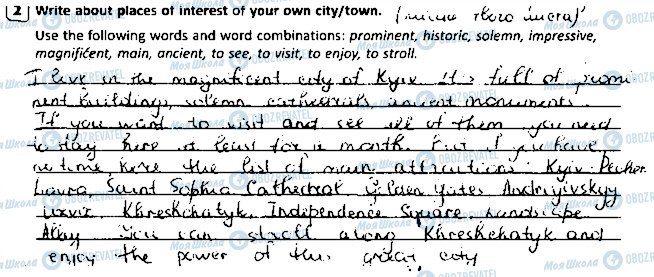 2 Write about places of interest of your own city/town. (письмо твого
Use the following words and word combinations: prominent, historic, solemn, impressive,
magnificent, main, ancient, to see, to visit, to enjoy, to stroll.
I live in the magnificent city of Kyiv. It is full of promi-
nent buildings, solemn cathedrals, ancient monuments.
If you want to visit and see all of them you need
to stay here at least for a month. But if you have
no time, here the list of main attractions: Kyiv-Pechor.
Lavra, Saint Sophia Cathedral, Golden Gates Andriyivskyy
uzviz, Khreshchatyk, Independence Square, Landscape
Alley. You can stroll along Khreshchatyk and
enjoy the power of this great city